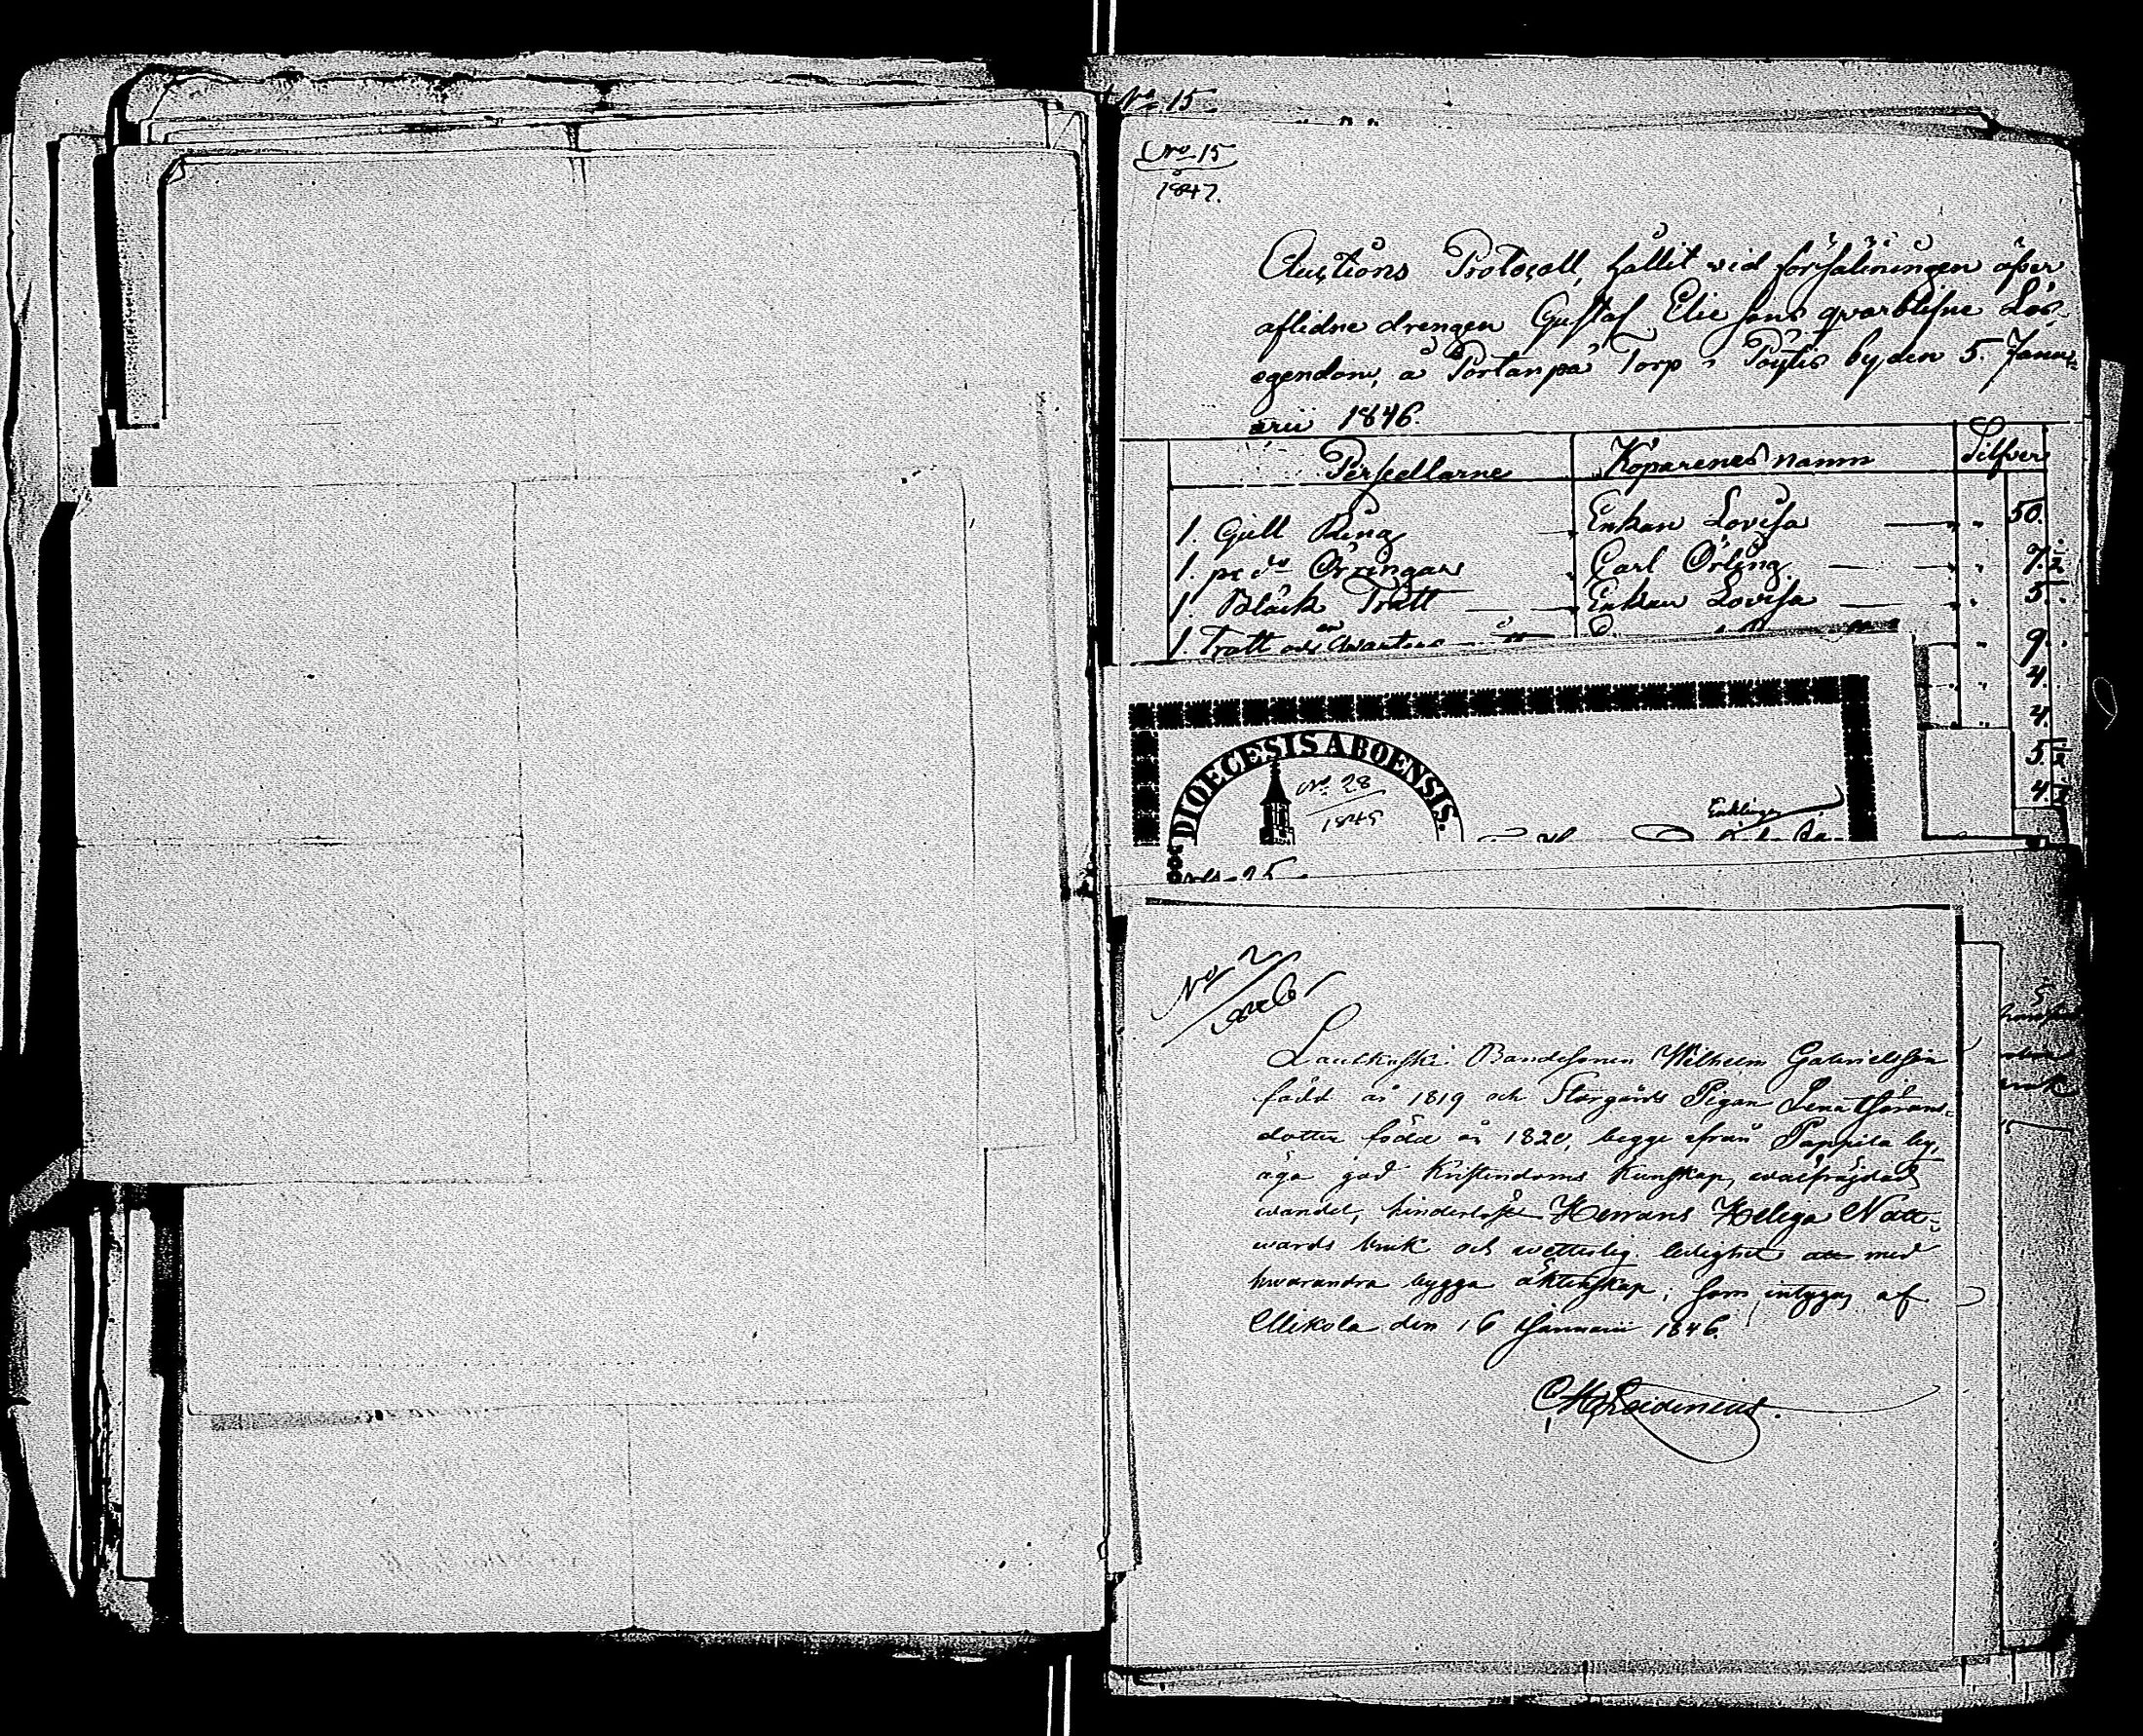 No 15
No 15
1847.
Auctions Protocoll, hållit vid försäljningen öfver
aflidne drengen Gustaf Eliesons qvarblifne Lös-
egendom, å Portanpä Torp i Pöytis by den 5. Janu-
arii 1846.
Persedlarne Köparenes namn Silfver
1. Gull Ring Enkan Lovisa " 50.
1. pr do Örringar Carl Örling " 7. ½
1 Bläck Tratt Enkan Lovisa " 5.
1. Tratt och " 9.
" 4.
" 4.
5. ½
4.
DIOECESIS ABOENSIS.
No 28
1845
No 25
No 2
Laukkaski Bondesonen Wilhelm Gabrielsson
född år 1819 och Storgårds Pigan Lena Görans-
dotter född år 1820, begge ifrån Pappila by,
äga god Kristendoms Kunskap, wälfräjdad
wandel, hinderlöst Herrans Heliga Natt-
wards bruk och wetterlig ledighet att med
hwarandra bygga äktenskap; som intygas af
Mikola den 16 Januarii 1846.